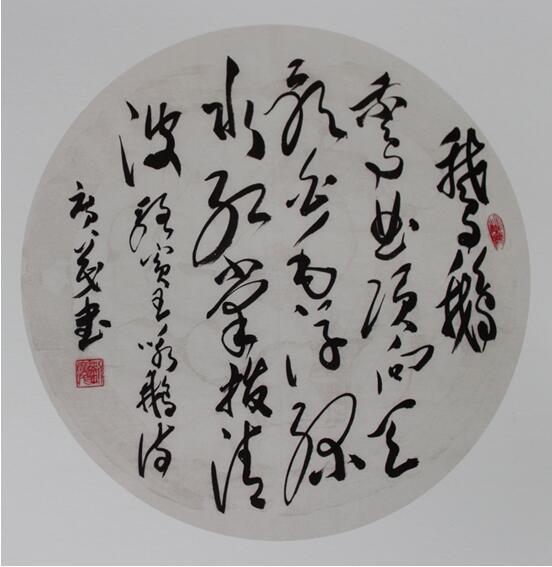 鵞鹅
鵞曲项向天
歌白毛浮绿
水红掌拨清
波 骆宾王咏鹅诗
广茂书